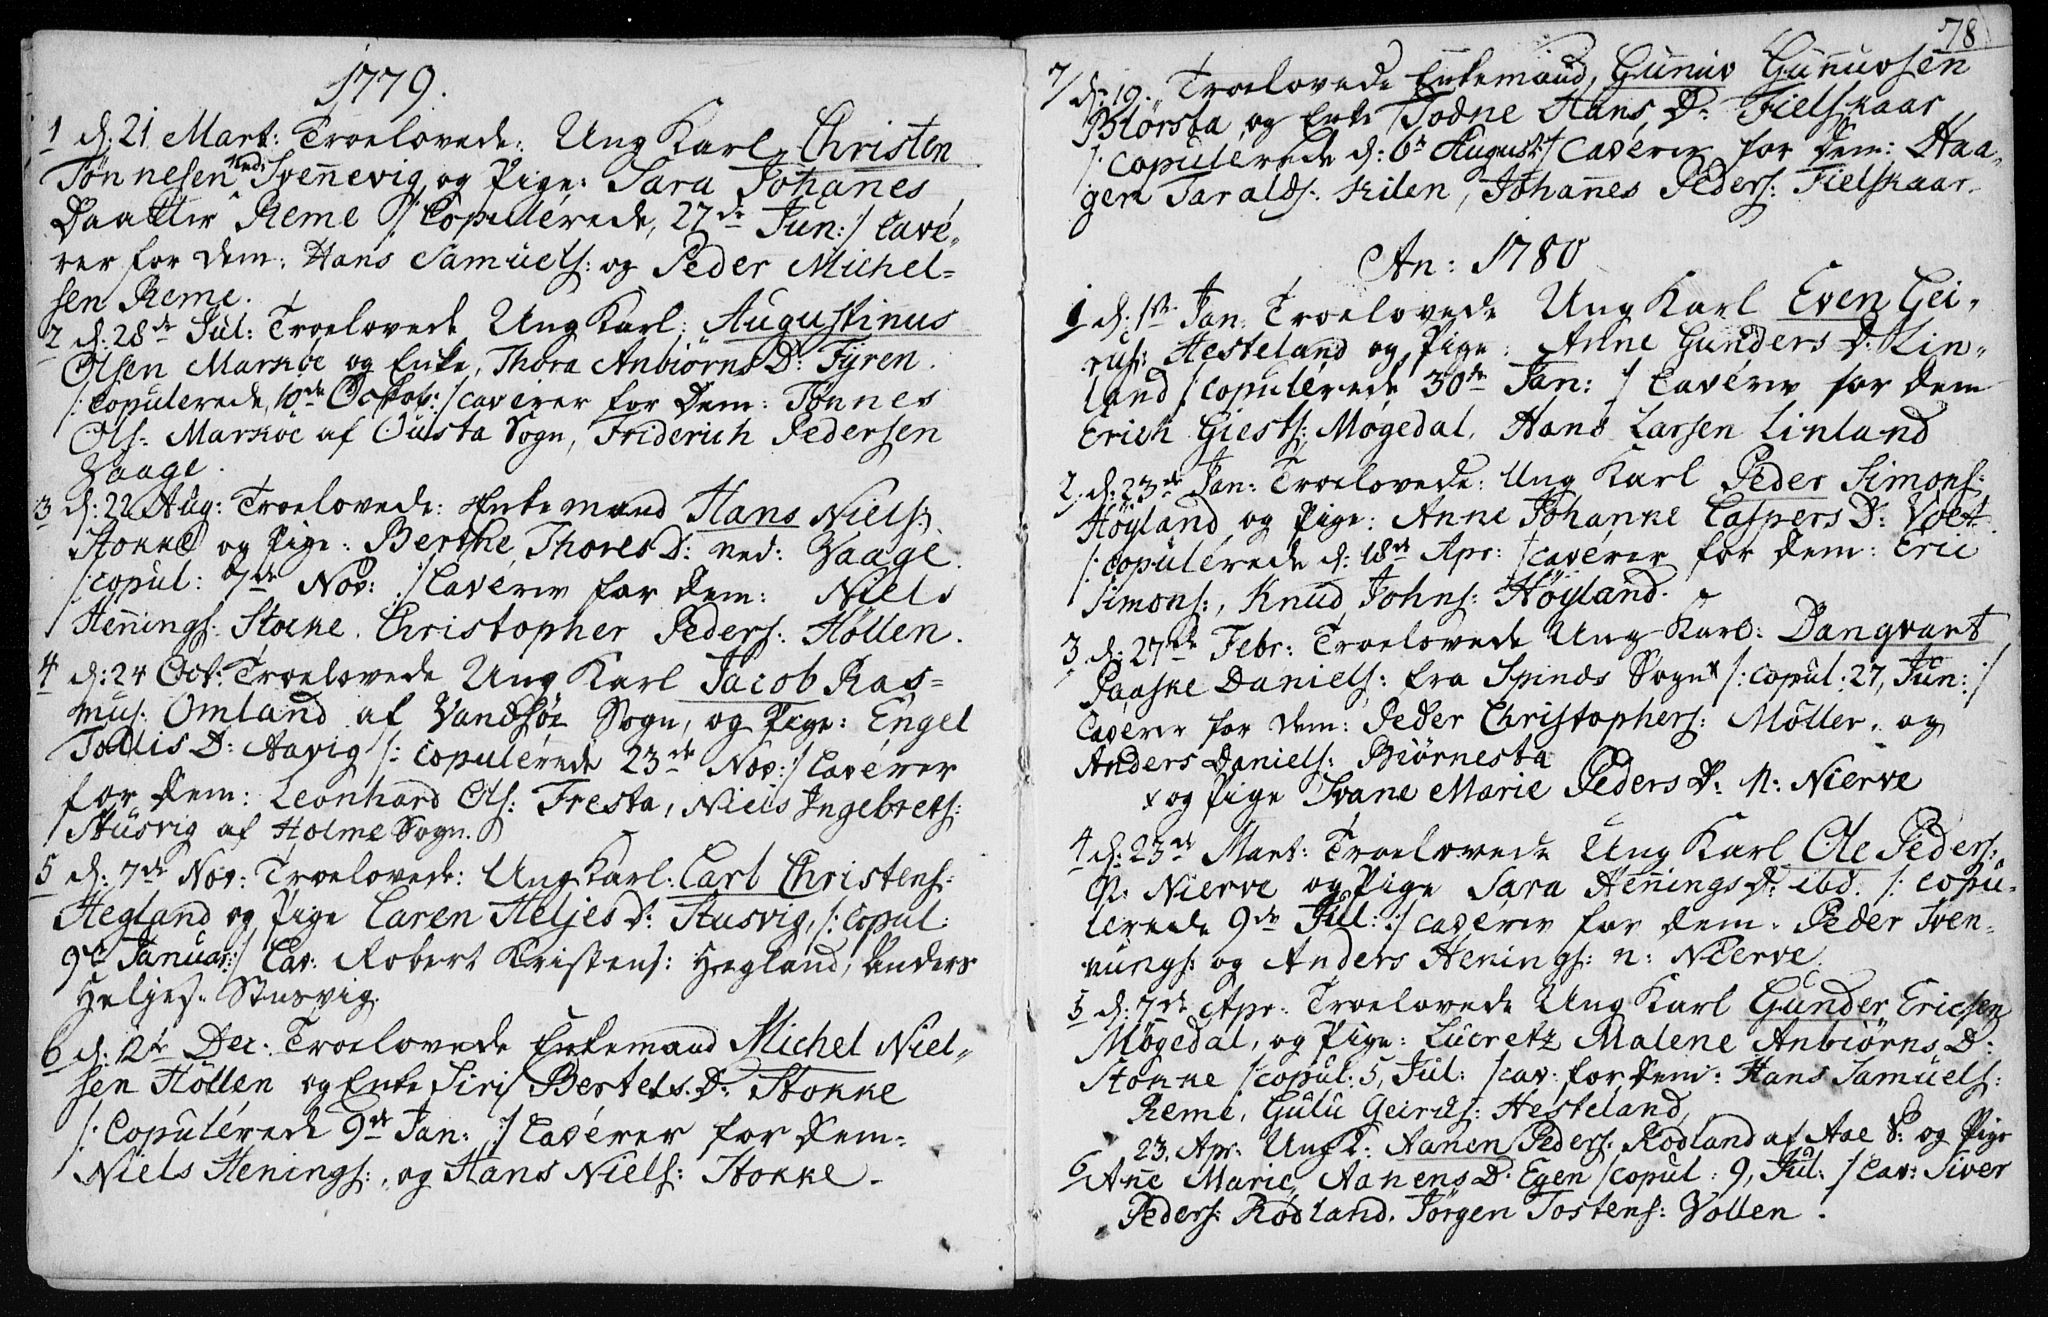 1779.
1 d: 21 Mart: Troelovede: Ung Karl Christen
Tønnesen ned: Svennevig og Pige: Sara Johannes
Daatter Reme /: Copulerede, 27de Jun: / Cave-
rer for dem: Hans Samuels: og Peder Michel-
sen Reme.
2 d: 28de Jul: Troelovede Ung Karl: Augustinus
Olsen Markøe og Enke, Thora Anbiørns D: Fÿren.
/: Copulerede, 10de Octob: / caverer for Dem: Tønnes
Ols: Markøe af Ousta Sogn, Friderich Pedersen
Vaage.
3 d: 22 Aug: Troelovede: Enkemand Hans Niels:
Stokke og Pige: Berthe Thores D: ned: Vaage.
/: copul: 7de Nov: :/ Caverer for dem: Niels
Hennings: Stokke. Christopher Peders: Höllen.
4 d: 24 Oct: Troelovede Ung Karl Jacob Ras-
mus: Omland af Vandsøe Sogn, og Pige: Engel
Tollis D: Aavig /: copulerede 23de Nov: / Caverer
for Dem: Leonhard Ols: Tresta, Niels Ingebrets:
Stusvig af Holme Sogn.
5 d: 7de Nov: Troelovede: Ung Karl: Carl Christens:
Hegland og Pige Caren Heljes D: Stusvig, /: copul:
9de Januar: / Cav: Robert Kristens: Hegland, Anders
Heljes: Stusvig.
6 d: 12t Dec: Troelovede Enkemand Michel Niel-
sen Höllen og Enke Siri Bertels: D: Stokke
/: Copulerede 9de Jan: :/ Caverer for Dem:
Niels Henings:, og Hans Niels: Stokke.
78
7/ d: 19. Troelovede Enkemand, Gunuv Gunuvsen
Biørsta og Enke Todne Hans D: Fielskaar
/: Copulerede d: 6te August / Caverer for Dem: Haa-
gen Taralds: Kilen, Johannes Peders: Fielskaar.
An: 1780
1 d: 1ste Jan: Troelovede Ung Karl Even Gei-
rus: Hesteland og Pige: Anne Gunders D: Lin-
land / copulerede 30de Jan: / Caverer for dem
Erich Giests: Møgedal, Hans Larsen Linland
2. d: 23de Jan: Troelovede: Ung Karl Peder Simons:
Höyland og Pige: Anne Johanne Caspers D: Voet
/: copulerede d: 18de Apr: / caverer for dem: Eric
Simons:, Knud Johns: Höyland.
3 d: 27de Febr: Troelovede Ung Karl: Danqvart
Paaske Daniels: fra Spinds Sogn x /: copul: 27, Jun: :/
Caverer for dem: Peder Christophers: Möller, og
Anders Daniels: Biörnesta
x og Pige Svane Marie Peders D: N: Nierve
4 d: 23de Mart: Troelovede Ung Karl Ole Peders:
N: Nierve og Pige Sara Hennings D: ibd. /: copu-
lerede 9de Jul: :/ caverer for dem: Peder Sven-
nungs: og Anders Henings: n: Nierve.
5 d: 7de Apr: Troelovede Ung Karl Gunder Ericsen
Møgedal, og Pige: Lucretz Malene Anbiørns D:
Stokke / copul: 5, Jul: / cav: for dem: Hans Samuels:
Reme, Gulu Geirds: Hesteland,
23. Apr: Ung K: Aanen Peders: Rødland af Aae S: og Pige
6 Anne Marie Aanens D: Egen / copul: 9, Jul: / Cav: Siver
Peders: Rødland. Jörgen Tostens: Vollen.